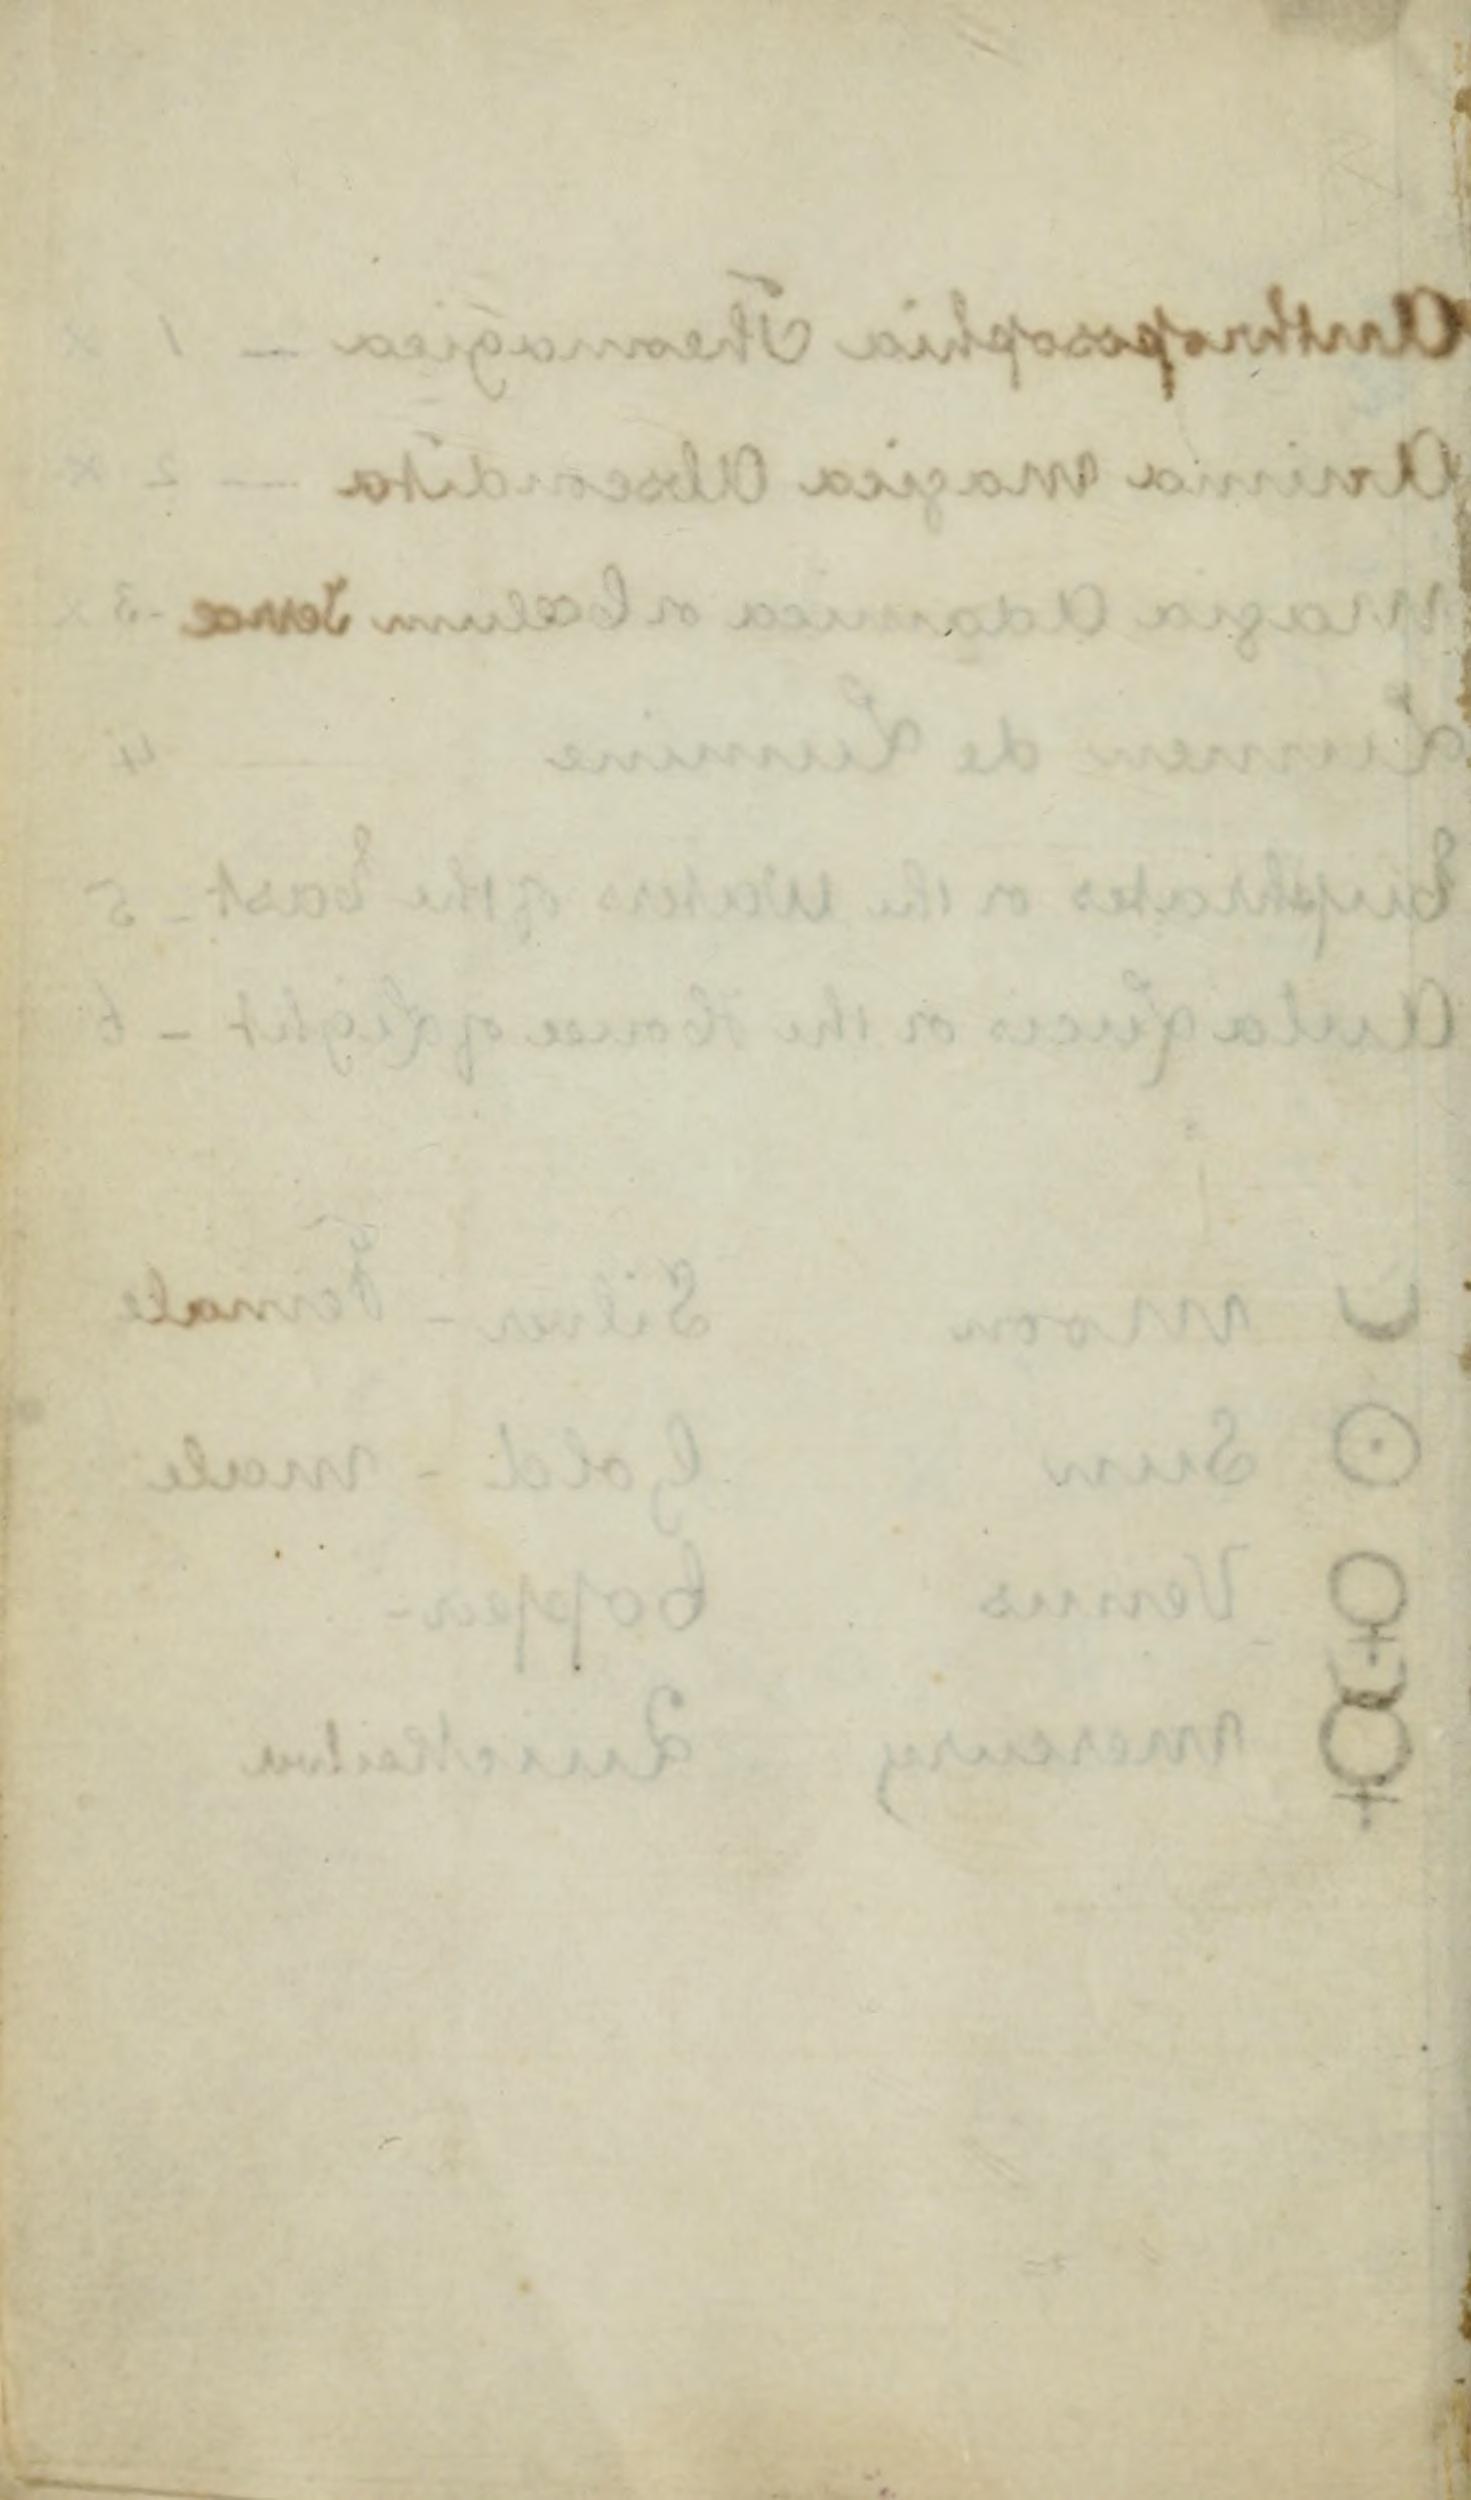 Anthroposophia Theomagica — 1 x
Anima Magica Abscondita — 2 x
Magia Adamica or Coelum Terrae - 3 x
Lumen de Lumine — 4
Euphrates or the Waters of the East - 5
Aula Lucis or the House of Light - 6
☽ Moon Silver - Female
☉ Sun Gold - Male
♀ Venus Copper -
☿ Mercury